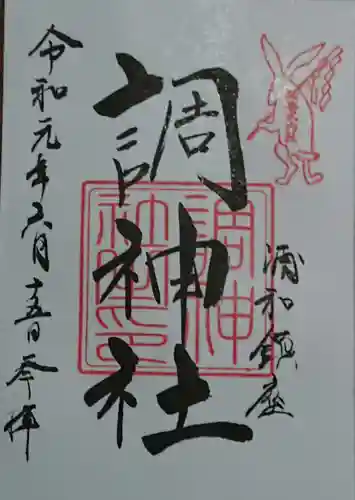 浦和鎮座
調神社
調神社印
令和元年六月十五日参拝